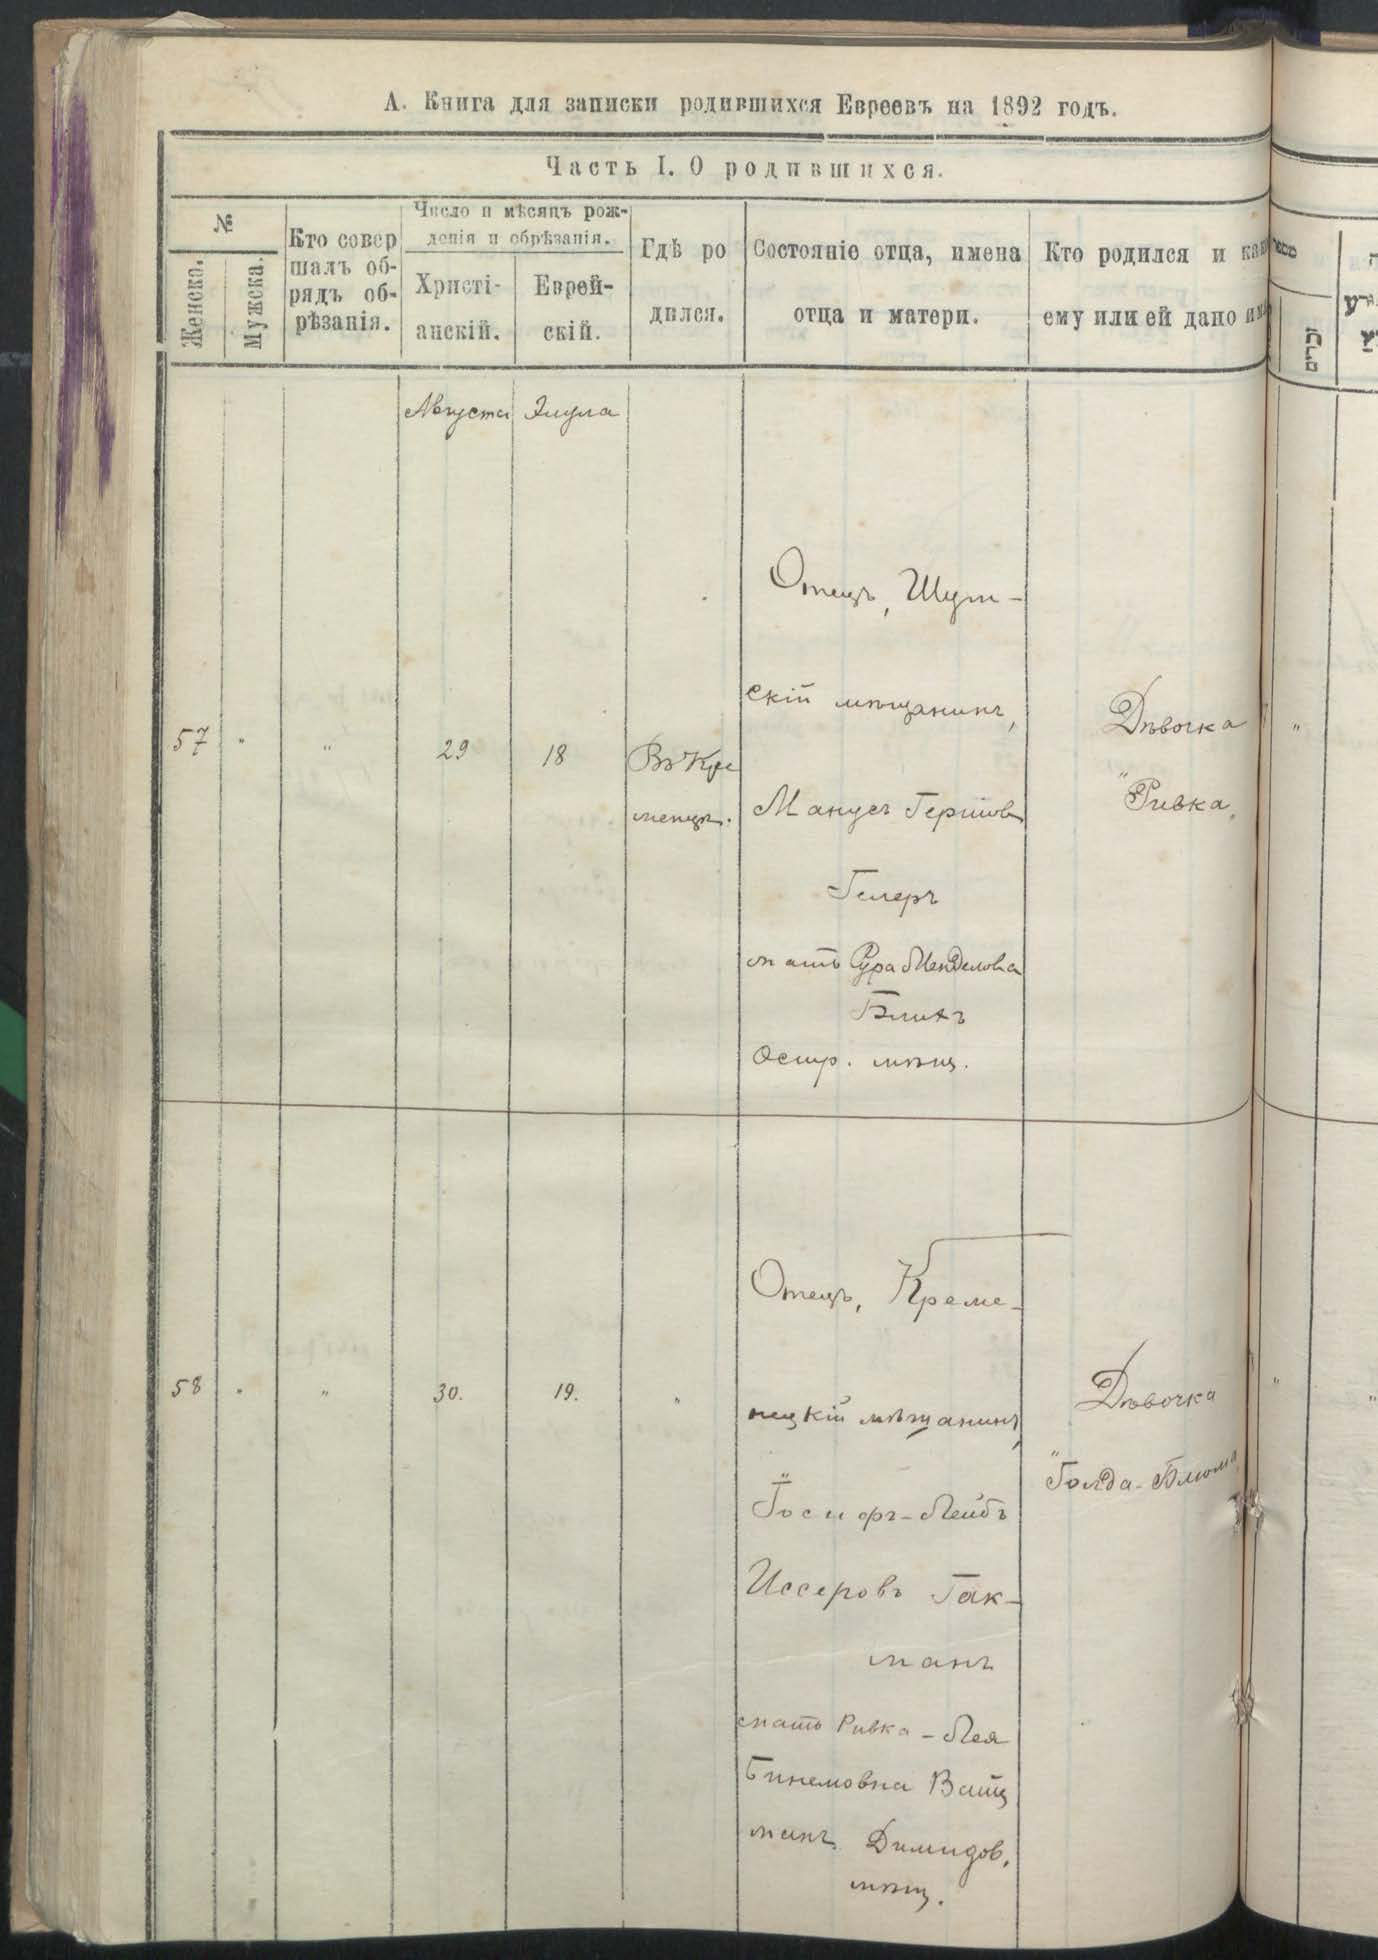 А. Книга для записки родившихся Евреевъ на 1892 годъ.
Часть I. О родившихся.
№
Женска.
Мужска.
Кто совер
шалъ об-
рядъ об-
рѣзанія.
Число и мѣсяцъ рож-
денія и обрѣзанія.
Христі-
анскій.
Еврей-
скій.
Гдѣ ро
дился.
Состояніе отца, имена
отца и матери.
Кто родился и как
ему или ей дано
זכרים
Августа Элула
57 " "
29
18
Въ Кре
менцѣ.
Отецъ, Шум-
скій мѣщанинъ,
Манусъ Гершов
Гелеръ
мать Сура Менделова
Бликъ
Остр. мѣщ.
Дѣвочка
"Ривка"
58 " "
30.
19.
"
Отецъ, Креме-
нецкій мѣщанинъ,
Іосифъ-Лейбъ
Иссеровъ Гак-
манъ
мать Ривка-Лея
Бинемовна Вайц
манъ Димидов.
мѣщ.
Дѣвочка
"Голда-Блюма"